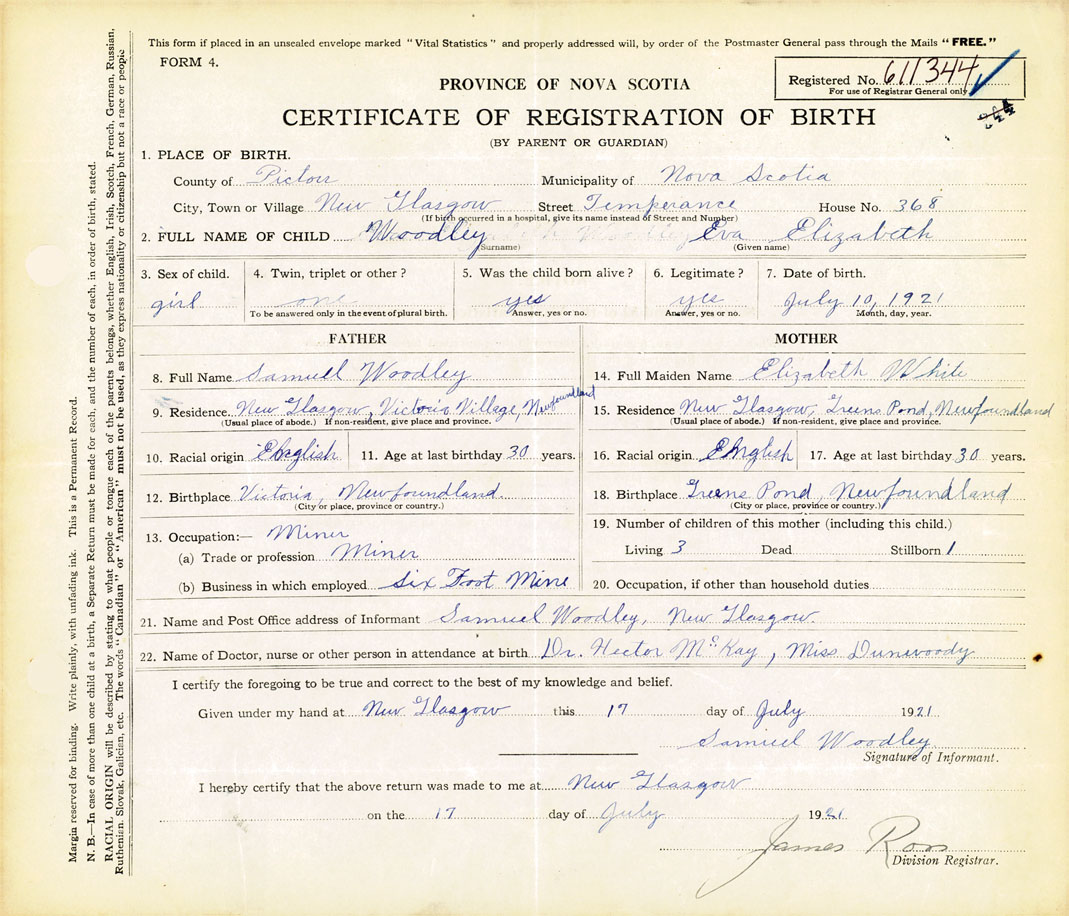 This form if placed in an unsealed envelope marked "Vital Statistics" and properly addressed will, by order of the Postmaster General pass through the Mails "FREE."
FORM 4.
Registered No. 611344
For use of Registrar General only
PROVINCE OF NOVA SCOTIA
CERTIFICATE OF REGISTRATION OF BIRTH
(BY PARENT OR GUARDIAN)
1. PLACE OF BIRTH.
County of Pictou Municipality of Nova Scotia
City, Town or Village New Glasgow Street Temperance House No. 368
(If birth occurred in a hospital, give its name instead of Street and Number)
2. FULL NAME OF CHILD Woodley Eva Elizabeth
(Surname) (Given name)
3. Sex of child. 4. Twin, triplet or other? 5. Was the child born alive? 6. Legitimate? 7. Date of birth.
girl one yes yes July 10, 1921
To be answered only in the event of plural birth. Answer, yes or no. Answer, yes or no. Month, day, year.
FATHER MOTHER
8. Full Name Samuel Woodley 14. Full Maiden Name Elizabeth White
9. Residence New Glasgow, Victoria Village, Newfoundland 15. Residence New Glasgow, Greens Pond, Newfoundland
(Usual place of abode.) If non-resident, give place and province. (Usual place of abode.) If non-resident, give place and province.
10. Racial origin English 11. Age at last birthday 30 years. 16. Racial origin English 17. Age at last birthday 30 years.
12. Birthplace Victoria, Newfoundland. 18. Birthplace Greens Pond, Newfoundland
(City or place, province or country.) (City or place, province or country.)
13. Occupation:— Miner 19. Number of children of this mother (including this child.)
(a) Trade or profession Miner Living 3 Dead Stillborn 1
(b) Business in which employed Six Foot Mine 20. Occupation, if other than household duties
21. Name and Post Office address of Informant Samuel Woodley, New Glasgow.
22. Name of Doctor, nurse or other person in attendance at birth Dr. Hector McKay, Miss Dunwoody
I certify the foregoing to be true and correct to the best of my knowledge and belief.
Given under my hand at New Glasgow this 17 day of July 1921
Samuel Woodley
Signature of Informant.
I hereby certify that the above return was made to me at New Glasgow
on the 17 day of July 1921
James Ross
Division Registrar.
Margin reserved for binding. Write plainly, with unfading ink. This is a Permanent Record.
N. B.—In case of more than one child at a birth, a Separate Return must be made for each, and the number of each, in order of birth, stated.
RACIAL ORIGIN will be described by stating to what people or tongue each of the parents belongs, whether English, Irish, Scotch, French, German, Russian,
Ruthenian, Slovak, Galician, etc. The words "Canadian" or "American" must not be used, as they express nationality or citizenship but not a race or people